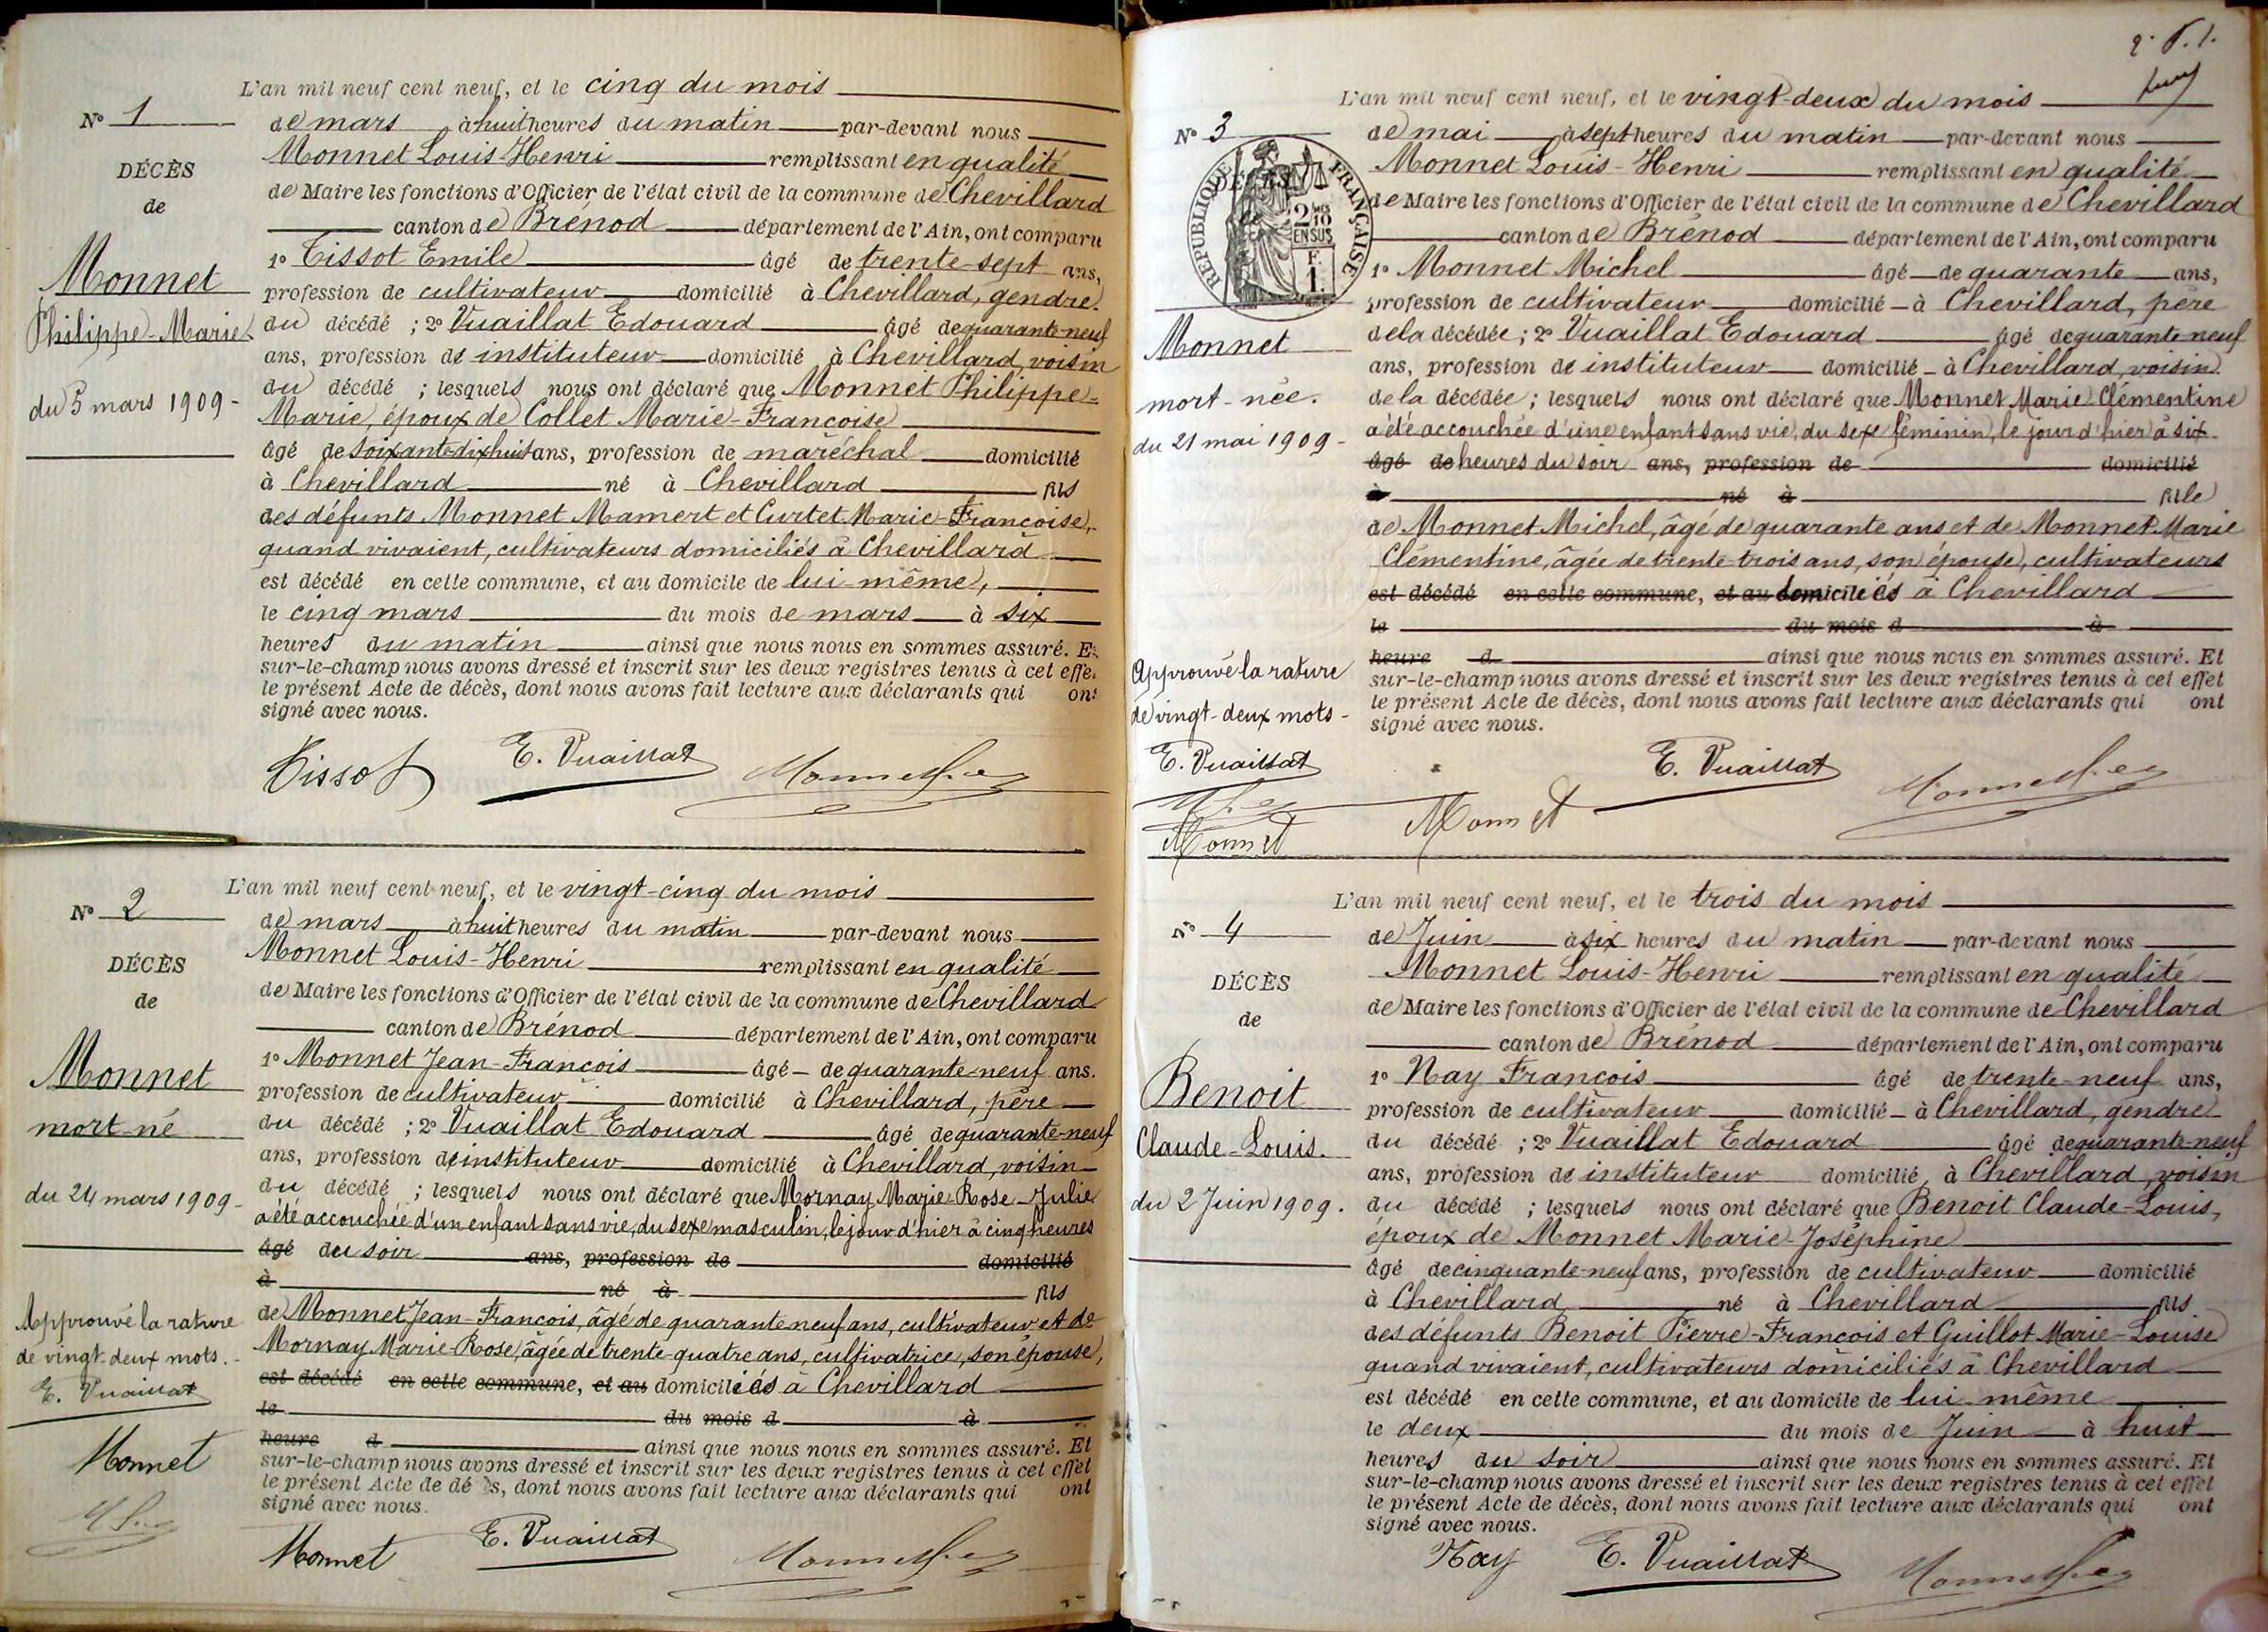 L'an mil neuf cent neuf, et le cinq du mois
N° 1
de mars à huit heures du matin par-devant nous
Monnet Louis-Henri remplissant en qualité
DÉCÈS
de Maire les fonctions d'Officier de l'état civil de la commune de Chevillard
de
canton de Brénod département de l'Ain, ont comparu
1° Tissot Emile âgé de trente-sept ans,
Monnet
profession de cultivateur domicilié à Chevillard, gendre
Philippe-Marie
du décédé ; 2° Vuaillat Edouard âgé de quarante-neuf
ans, profession de instituteur domicilié à Chevillard, voisin
du décédé ; lesquels nous ont déclaré que Monnet Philippe-
du 5 mars 1909-
Marie, époux de Collet Marie-Françoise
âgé de soixante dix huit ans, profession de maréchal domicilié
à Chevillard né à Chevillard fils
des défunts Monnet Mamert et Curtet Marie-Françoise,
quand vivaient, cultivateurs domiciliés à Chevillard
est décédé en cette commune, et au domicile de lui-même,
le cinq mars du mois de mars à six
heures du matin ainsi que nous nous en sommes assuré. E
sur-le-champ nous avons dressé et inscrit sur les deux registres tenus à cet effe
le présent Acte de décès, dont nous avons fait lecture aux déclarants qui ont
signé avec nous.
Tissot E. Vuaillat
L'an mil neuf cent neuf, et le vingt-cinq du mois
N° 2
de mars à huit heures du matin par-devant nous
Monnet Louis-Henri remplissant en qualité
DÉCÈS
de Maire les fonctions d'Officier de l'état civil de la commune de Chevillard
de
canton de Brénod département de l'Ain, ont comparu
1° Monnet Jean-François âgé de quarante-neuf ans.
Monnet
profession de cultivateur domicilié à Chevillard, père
mort-né
du décédé ; 2° Vuaillat Edouard âgé de quarante-neuf
ans, profession de instituteur domicilié à Chevillard, voisin
du 24 mars 1909-
du décédé ; lesquels nous ont déclaré que Mornay Marie-Rose-Julie
a été accouchée d'un enfant sans vie, du sexe masculin, le jour d'hier à cinq heures
âgé du soir ans, profession de domicilié
à né à fils
de Monnet Jean-François, âgé de quarante neuf ans, cultivateur et de
Approuvé la rature
Mornay Marie-Rose, âgée de trente-quatre ans, cultivatrice, son épouse,
de vingt-deux mots.
est décédé en cette commune, et au domiciliés à Chevillard
E. Vuaillat
le du mois d à
heure d ainsi que nous nous en sommes assuré. Et
Monnet
sur-le-champ nous avons dressé et inscrit sur les deux registres tenus à cet effet
le présent Acte de dé ès, dont nous avons fait lecture aux déclarants qui ont
signé avec nous.
Monnet E. Vuaillat
L'an mil neuf cent neuf, et le vingt-deux du mois
N° 3
de mai à sept heures du matin par-devant nous
Monnet Louis-Henri remplissant en qualité
RÉPUBLIQUE FRANÇAISE
2/10
EN SUS
F.
1.
de Maire les fonctions d'Officier de l'état civil de la commune de Chevillard
canton de Brénod département de l'Ain, ont comparu
1° Monnet Michel âgé de quarante ans,
profession de cultivateur domicilié à Chevillard, père
Monnet
de la décédée ; 2° Vuaillat Edouard âgé de quarante neuf
ans, profession de instituteur domicilié à Chevillard, voisin
mort-née.
de la décédée ; lesquels nous ont déclaré que Monnet Marie Clémentine
du 21 mai 1909-
a été accouchée d'une enfant sans vie, du sexe féminin, le jour d'hier à six
âgé de heures du soir ans, profession de domicilié
à né à fille
de Monnet Michel, âgé de quarante ans et de Monnet Marie
Clémentine, âgée de trente-trois ans, son épouse, cultivateurs
est décédé en cette commune, et au domiciliés à Chevillard
le du mois d à
heure d ainsi que nous nous en sommes assuré. Et
Approuvé la rature
sur-le-champ nous avons dressé et inscrit sur les deux registres tenus à cet effet
le présent Acte de décès, dont nous avons fait lecture aux déclarants qui ont
de vingt-deux mots-
signé avec nous.
E. Vuaillat
E. Vuaillat
Monnet
Monnet
L'an mil neuf cent neuf, et le trois du mois
N° 4
de Juin à six heures du matin par-devant nous
Monnet Louis-Henri remplissant en qualité
DÉCÈS
de Maire les fonctions d'Officier de l'état civil de la commune de Chevillard
de
canton de Brénod département de l'Ain, ont comparu
1° Nay François âgé de trente-neuf ans,
Benoit
profession de cultivateur domicilié à Chevillard, gendre
Claude-Louis.
du décédé ; 2° Vuaillat Edouard âgé de quarante-neuf
ans, profession de instituteur domicilié à Chevillard, voisin
du 2 Juin 1909.
du décédé ; lesquels nous ont déclaré que Benoit Claude-Louis,
époux de Monnet Marie-Joséphine
âgé de cinquante-neuf ans, profession de cultivateur domicilié
à Chevillard né à Chevillard fils
des défunts Benoit Pierre-François et Guillot Marie-Louise
quand vivaient, cultivateurs domiciliés à Chevillard
est décédé en cette commune, et au domicile de lui-même
le deux du mois de Juin à huit
heures du soir ainsi que nous nous en sommes assuré. Et
sur-le-champ nous avons dressé et inscrit sur les deux registres tenus à cet effet
le présent Acte de décès, dont nous avons fait lecture aux déclarants qui ont
signé avec nous.
Nay E. Vuaillat